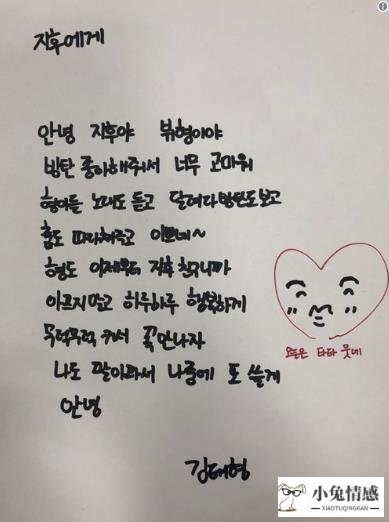 지후에게
안녕 지후야 뷔형이야
방탄 좋아해줘서 너무 고마워
형아들 노래도 듣고 달려라방탄도보고
춤도 따라쳐주고 이쁘네~
형도 이제부터 지후 친구니까
아프지말고 하루하루 행복하게
무럭무럭 커서 꼭 만나자
나도 팔아파서 나중에 또 쓸게
안녕
오늘은 타타 웃네
김태형
小兔情感
XIAOTUQINGGAN